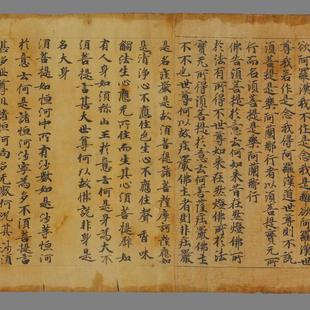 欲阿羅漢我不作是念我是離欲阿羅漢世
尊我若作是念我得阿羅漢道世尊則不說
須菩提是樂阿蘭那行者以須菩提實无所
行而名須菩提是樂阿蘭那行
佛告須菩提於意云何如來昔在然燈佛所
於法有所得不世尊如來在然燈佛所於法
實无所得須菩提於意云何菩薩莊嚴佛土
不不也世尊何以故莊嚴佛土者則非莊嚴
是名莊嚴是故須菩提諸菩薩摩訶薩應如
是生清淨心不應住色生心不應住聲香味
觸法生心應无所住而生其心須菩提譬如
有人身如須彌山王於意云何是身為大不
須菩提言甚大世尊何以故佛說非身是
名大身
須菩提如恒河中所有沙數如是沙等恒河
於意云何是諸恒河沙寧為多不須菩提言
甚多世尊但諸恒河尚多无數何況其沙須